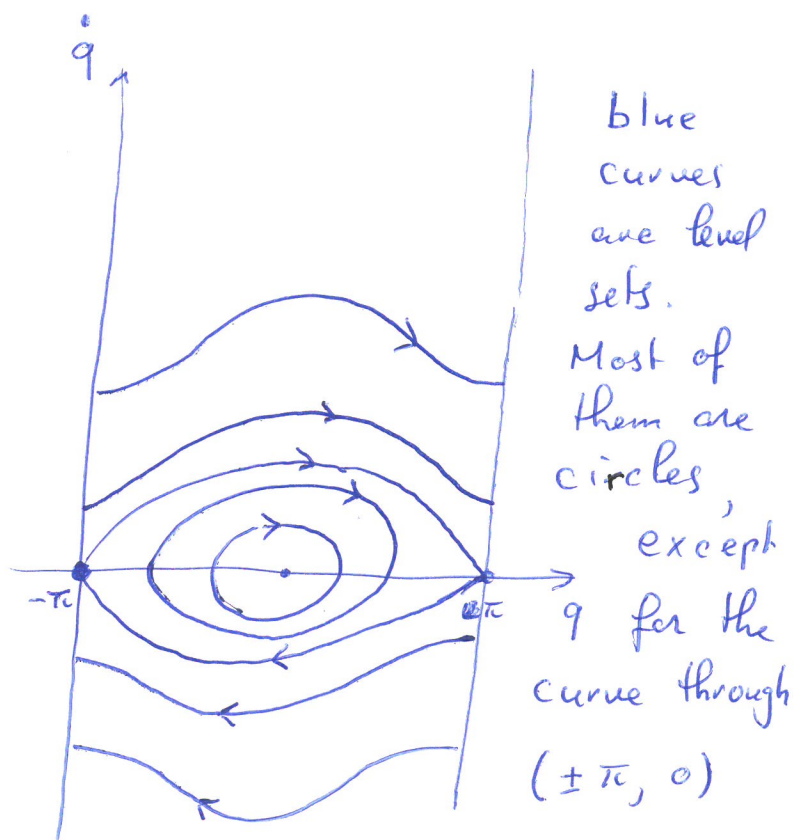 q̇
blue
curves
are level
sets.
Most of
them are
circles,
except
-π π q for the
curve through
(± π, 0)